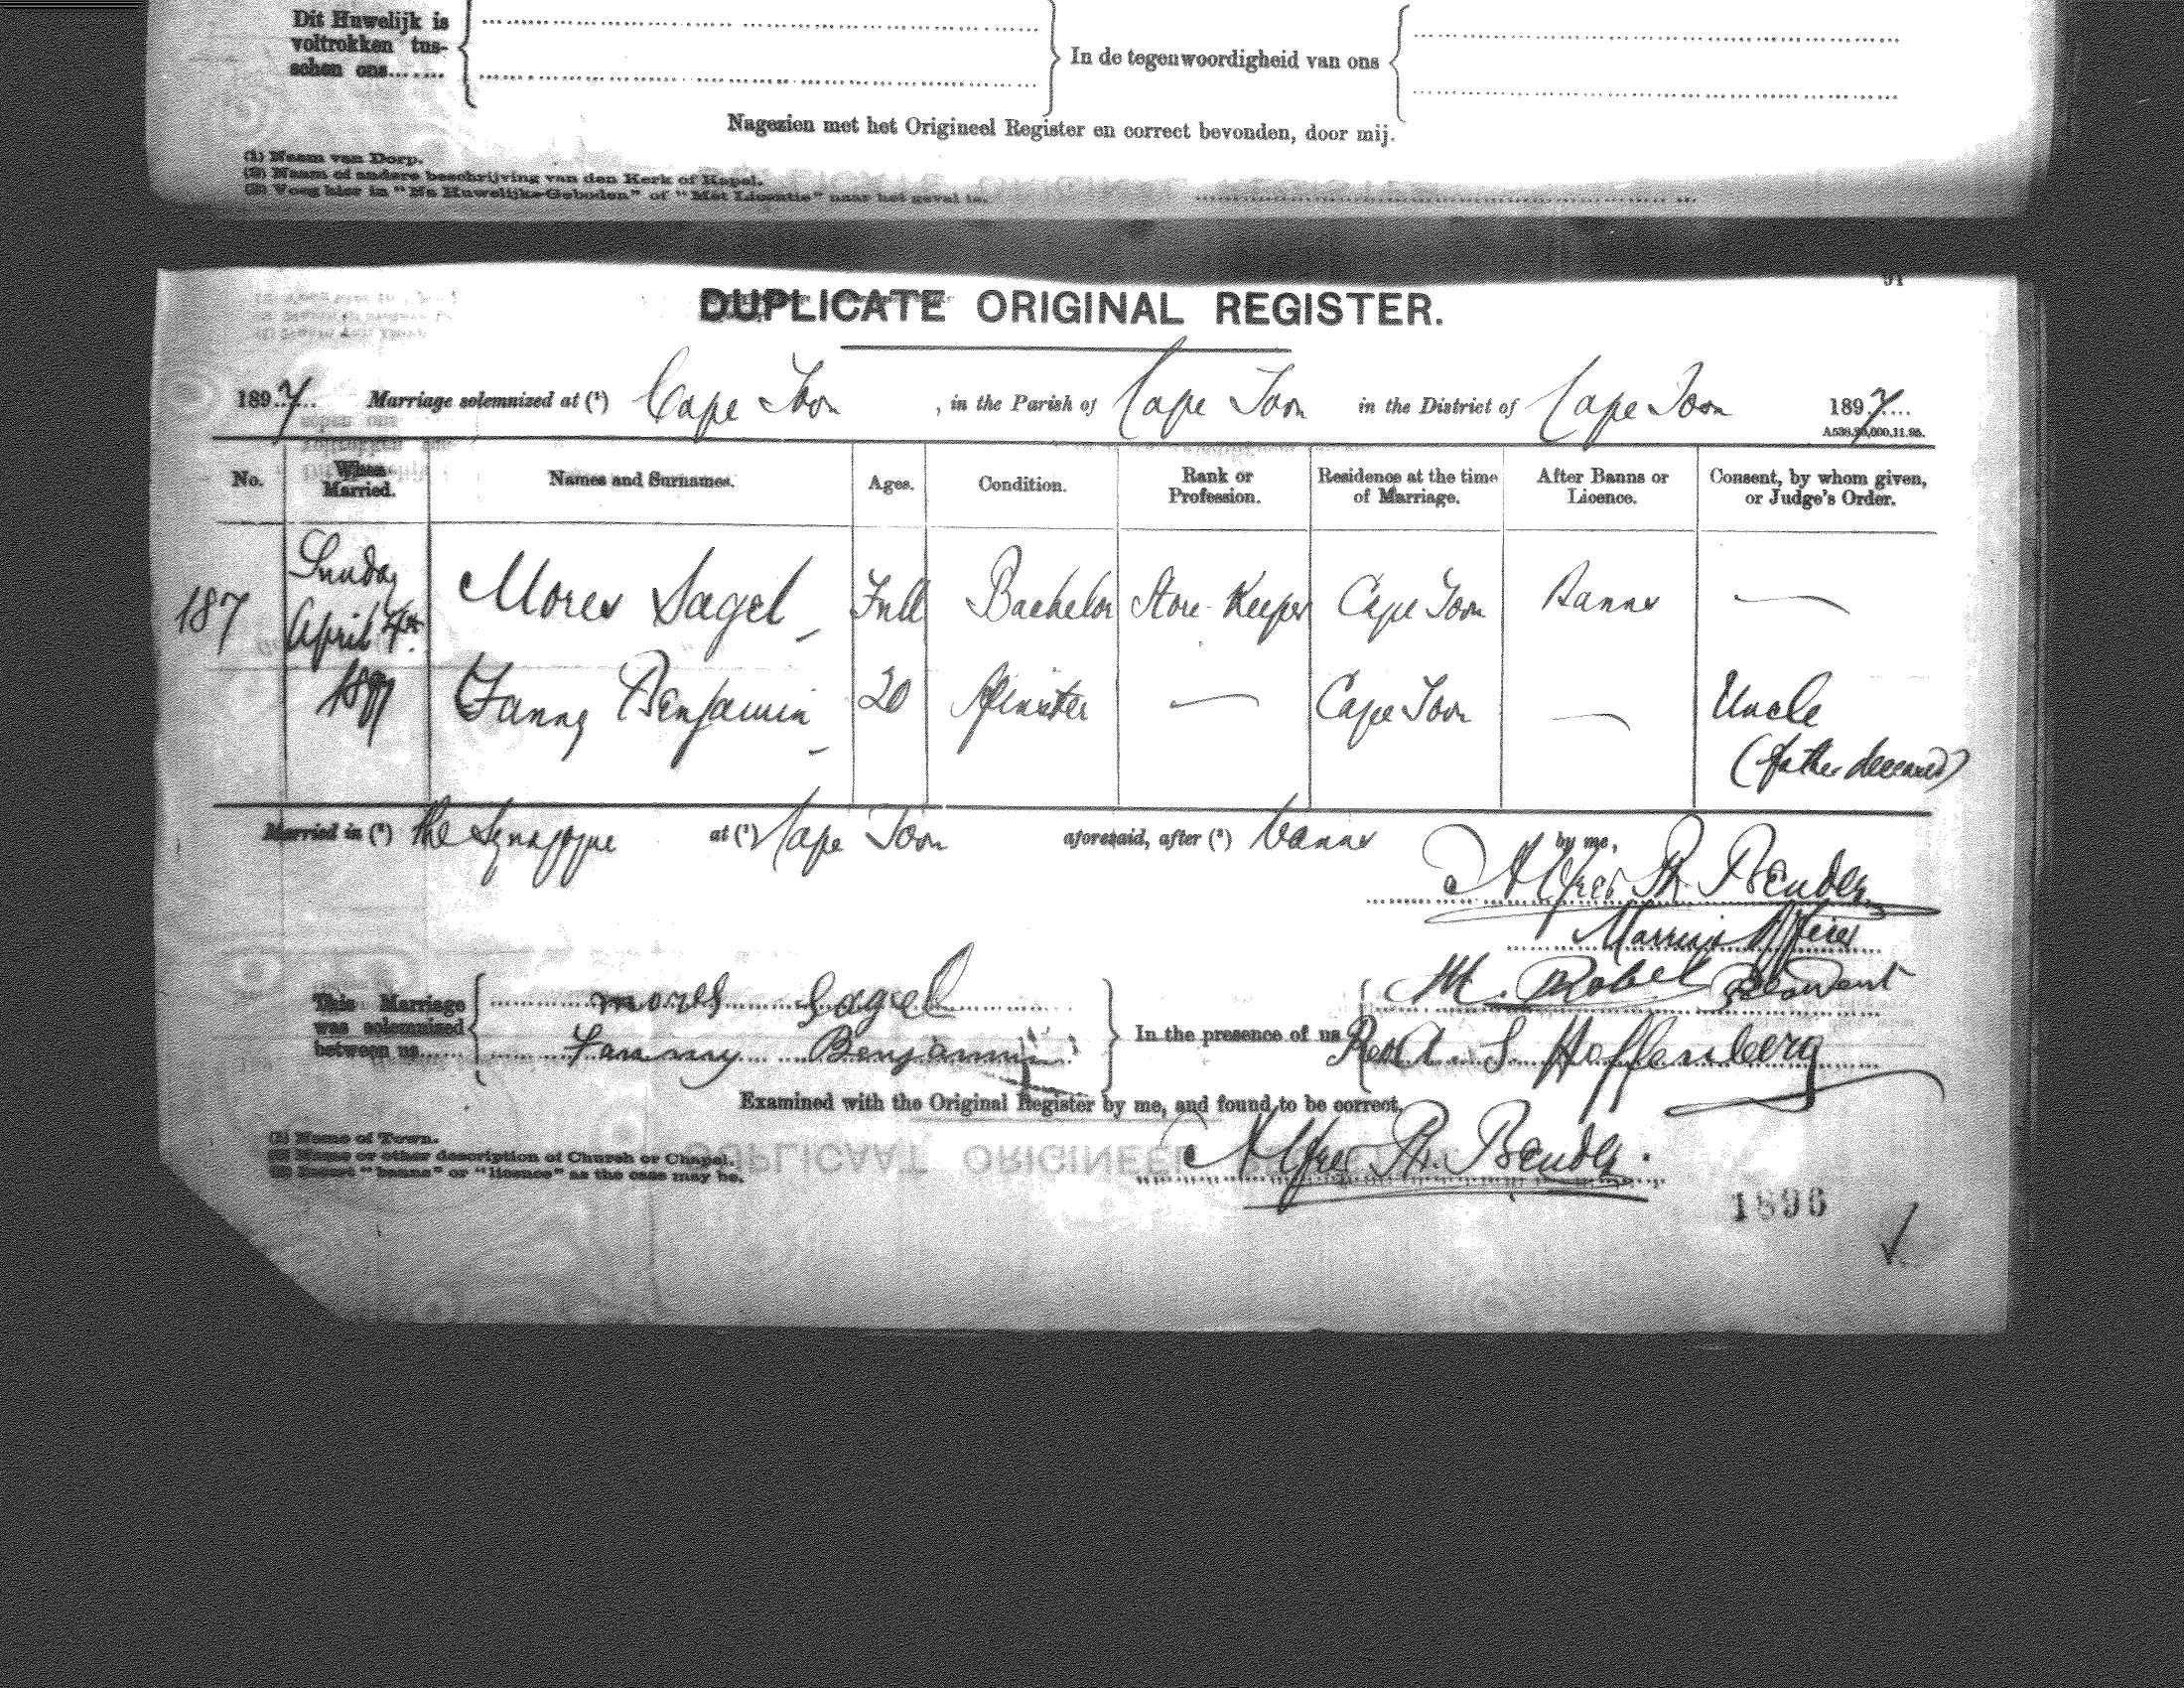 Dit Huwelijk is
voltrokken tus-
schen ons.......
In de tegenwoordigheid van ons
Nagezien met het Origineel Register en correct bevonden, door mij.
(1) Naam van Dorp.
(2) Naam of andere beschrijving van den Kerk of Kapel.
(3) Voeg hier in "Na Huwelijks-Geboden" of "Met Licentie" naar het geval is.
DUPLICATE ORIGINAL REGISTER.
1897 Marriage solemnized at (1) Cape Town, in the Parish of Cape Town in the District of Cape Town 1897
No. When Married. Names and Surnames. Ages. Condition. Rank or Profession. Residence at the time of Marriage. After Banns or Licence. Consent, by whom given, or Judge's Order.
187 Sunday April 4th 1897 Mores Sagel Full Bachelor Store-Keeper Cape Town Banns —
Fanny Benjamin 20 Spinster — Cape Town — Uncle
(father deceased)
Married in (2) the Synagogue at (1) Cape Town aforesaid, after (3) banns by me,
Alfred P. Bender
Marriage Officer
This Marriage
was solemnized
between us......
mores Sagel
Fanny Benjamin
In the presence of us
M.
Rev A. S. Hoffenberg
Examined with the Original Register by me, and found to be correct,
Alfred P. Bender.
(1) Name of Town.
(2) Name or other description of Church or Chapel.
(3) Insert "banns" or "licence" as the case may be.
1896